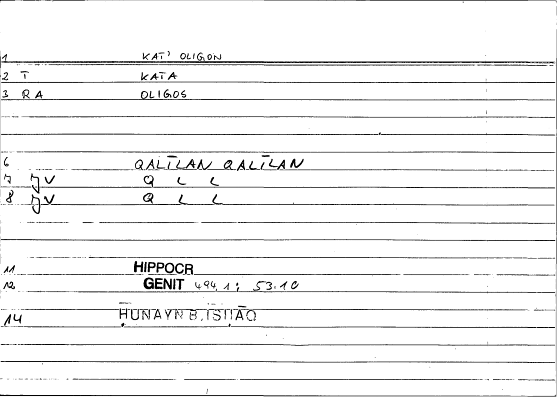 1 KAT' OLIGON
2 T KATA
3 RA OLIGOS
6 QALĪLAN QALĪLAN
7 JV Q L L
8 JV Q L L
11 HIPPOCR
12 GENIT 494.1; 53.10
14 ḤUNAYN B. ISḤĀQ